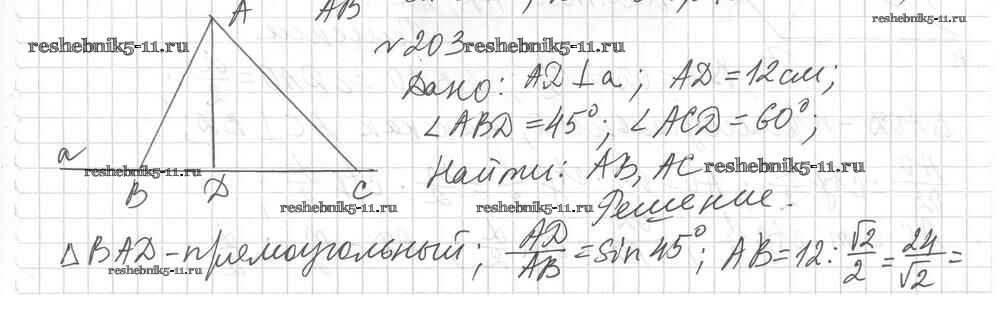 A AB
reshebnik5-11.ru
reshebnik5-11.ru
N 203 reshebnik5-11.ru
Дано: AD ⊥ a; AD = 12 см;
∠ABD = 45°; ∠ACD = 60°;
a
reshebnik5-11.ru
Найти: AB, AC reshebnik5-11.ru
B D C
reshebnik5-11.ru
reshebnik5-11.ru
Решение.
△BAD - прямоугольный; AD/AB = sin 45°; AB = 12 : √2/2 = 24/√2 =
reshebnik5-11.ru